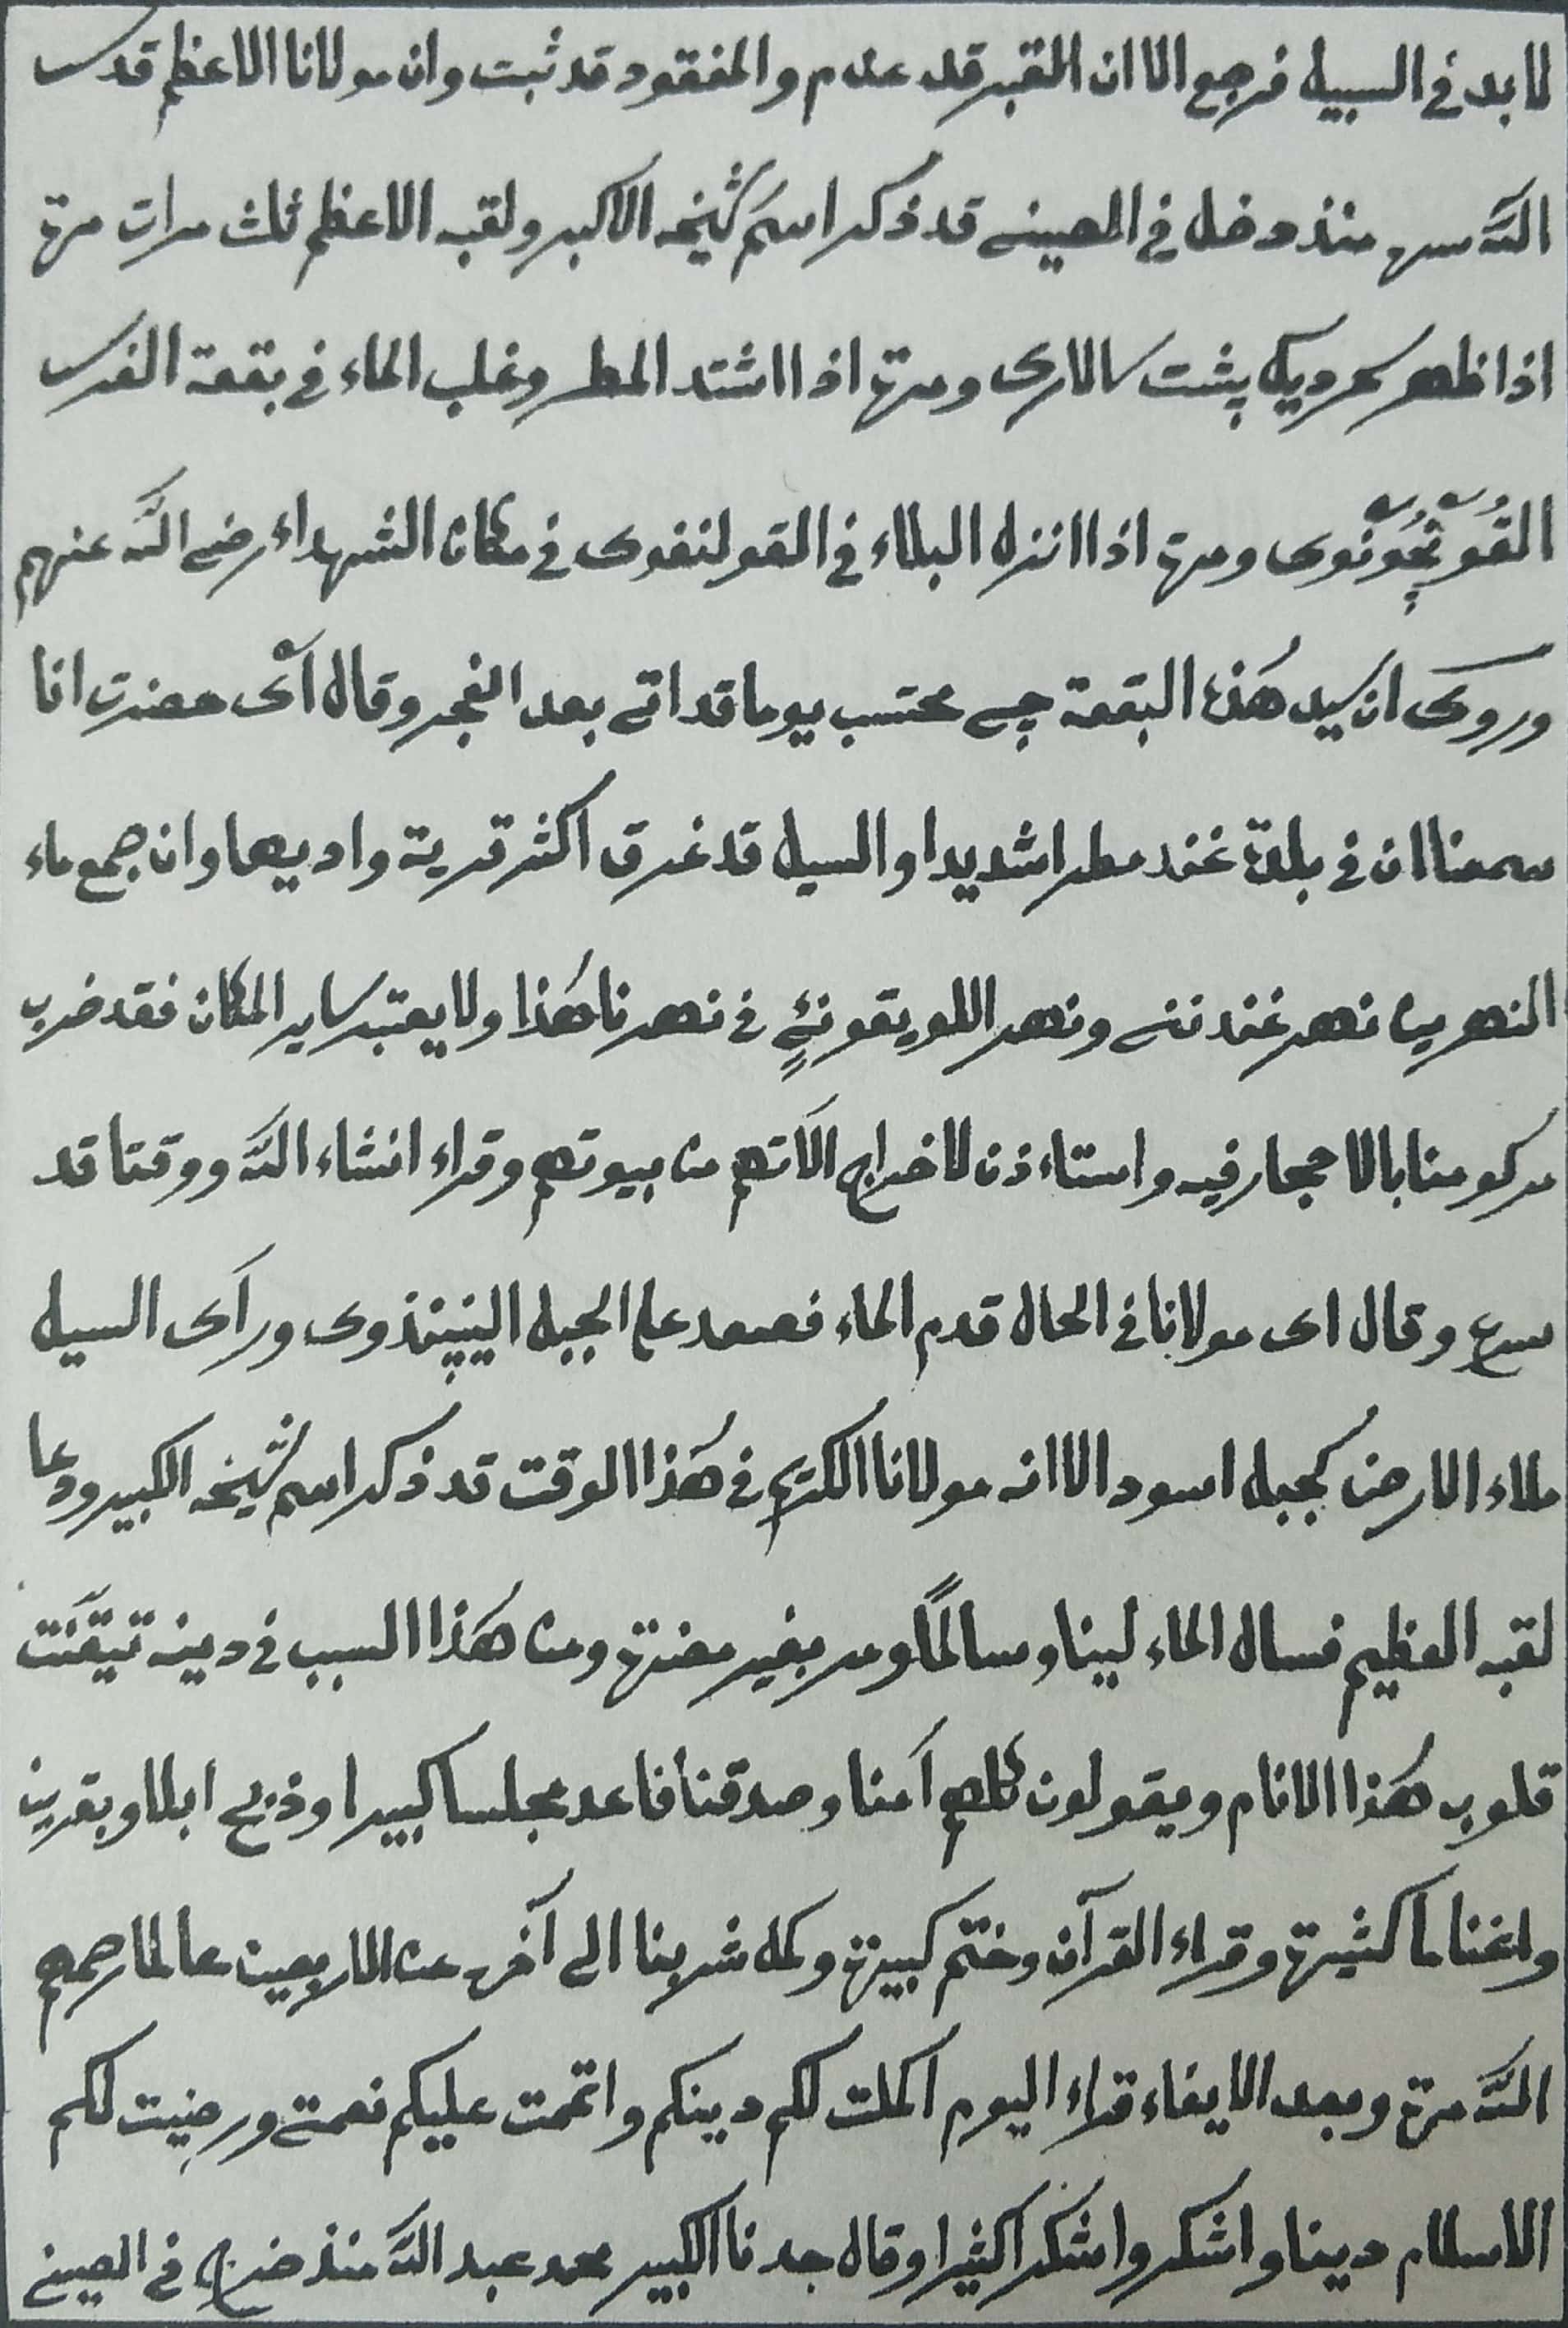 لابد في السبيل فرجع الا ان المقبر قد عدم والمفقود قد ثبت وان مولانا الاعظم قدس
الله سره منذ دخل في الصيني قد ذكر اسم شيخه الاكبر ولقبه الاعظم ثلث مرات مرة
اذا ظهر كرديل پشت سالارى ومرة اذا اشتد المطر وغلب الماء في بقعة الغرس
ومرة اذا انزل البلاء في القولنفوى في مكان الشهداء رضي الله عنهم
وروى ان سيد هذه البقعة چے محتسب يوما قد اتى بعد الفجر وقال اَى حضرت انا
سمعنا ان في بلدة غند مطرا شديدا والسيل قد غرق اكثر قرية واديها وان جمع ماء
النهرين نهر غندننے ونهر اللويقونئٍ في نهرنا هٰذا ولا يعتبر ساير المكان فقد ضرب
مركومنا بالاحجار فيه واستاءذن لاخراج الاَتهم من بيوتهم وقراء انشاء الله ووقتا قد
سرع وقال اى مولانا في الحال قدم الماء فصعد على الجبل ورأى السيل
ملاء الارض كجبل اسود الا انه مولانا الكريم في هٰذا الوقت قد ذكر اسم شيخه الكبير ودعا
لقبه العظيم فسال الماء لينا وسالمًا ومر بغير مضرة ومن هٰذا السبب في دينه تيقّنت
قلوب هٰذا الانام ويقولون كلهم اٰمنا وصدقنا فاعد مجلسا كبيرا وذبح ابلا وبقرين
واغناما كثيرة وقراء القرآن وختم كبيرة وكل شربنا الى آخره عن الاربعين عالما رحمهم
الله مرة وبعد الايفاء قراء اليوم اكملت لكم دينكم واتممت عليكم نعمتے ورضيت لكم
الاسلام دينا واشكروا شكرا كثيرا وقال جدنا الكبير محمد عبد الله منذ خرج في الصيني